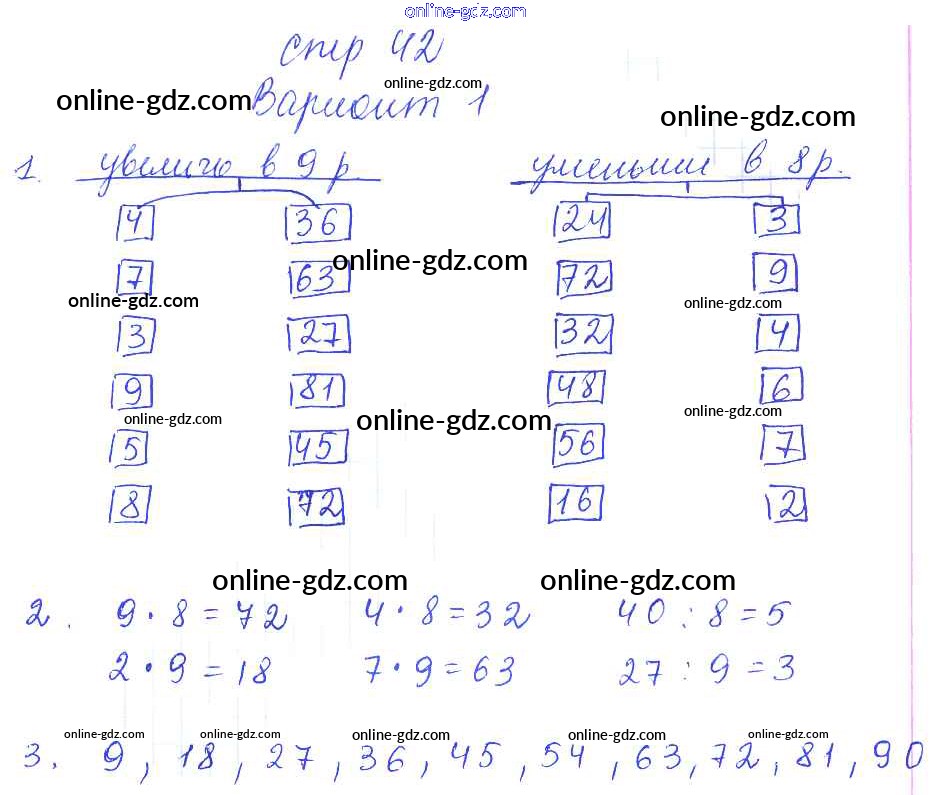 online-gdz.com
стр 42
online-gdz.com
online-gdz.com Вариант 1 online-gdz.com
1. увеличь в 9 р. уменьши в 8 р.
4 36 24 3
online-gdz.com
7 63 72 9
online-gdz.com online-gdz.com
3 27 32 4
9 81 48 6
online-gdz.com online-gdz.com online-gdz.com
5 45 56 7
8 72 16 2
online-gdz.com online-gdz.com
2. 9 · 8 = 72 4 · 8 = 32 40 : 8 = 5
2 · 9 = 18 7 · 9 = 63 27 : 9 = 3
online-gdz.com online-gdz.com online-gdz.com online-gdz.com online-gdz.com
3. 9, 18, 27, 36, 45, 54, 63, 72, 81, 90